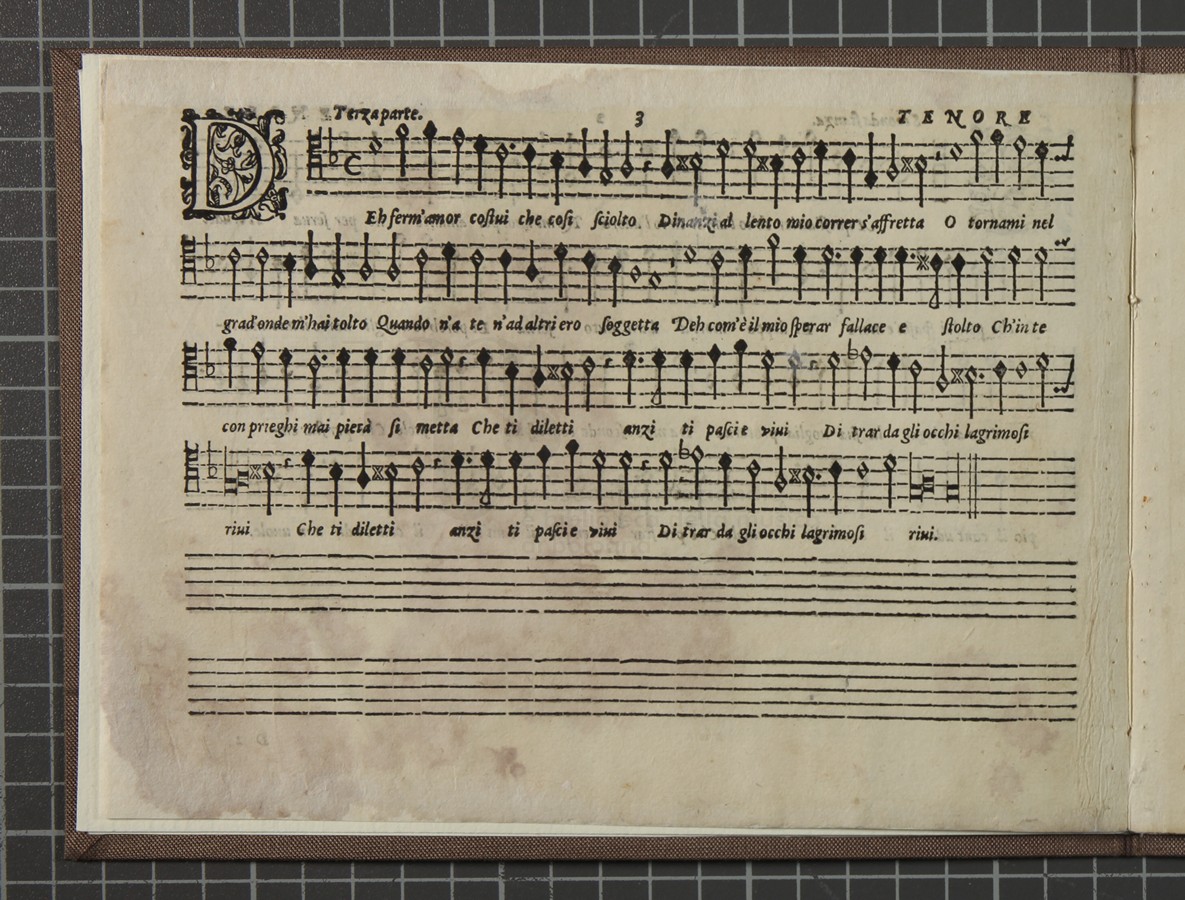 Terza parte. 3 TENORE
DEh ferm'amor costui che cosi sciolto Dinanzi al lento mio correr s'affretta O tornami nel
grad'onde m'hai tolto Quando n'a te n'ad altri ero soggetta Deh com'è il mio sperar fallace e stolto Ch'in te
con prieghi mai pietà si metta Che ti diletti anzi ti pasci e viui Di trar da gli occhi lagrimosi
riui Che ti diletti anzi ti pasci e viui Di trar da gli occhi lagrimosi riui.